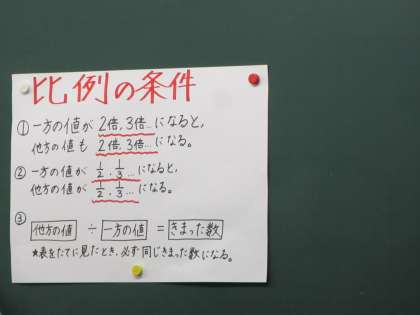 比例の条件
① 一方の値が 2倍, 3倍… になると,
他方の値も 2倍, 3倍… になる。
② 一方の値が 1/2, 1/3 … になると,
他方の値が 1/2, 1/3 … になる。
③
他方の値 ÷ 一方の値 = きまった数
★表をたてに見たとき, 必ず同じきまった数になる。